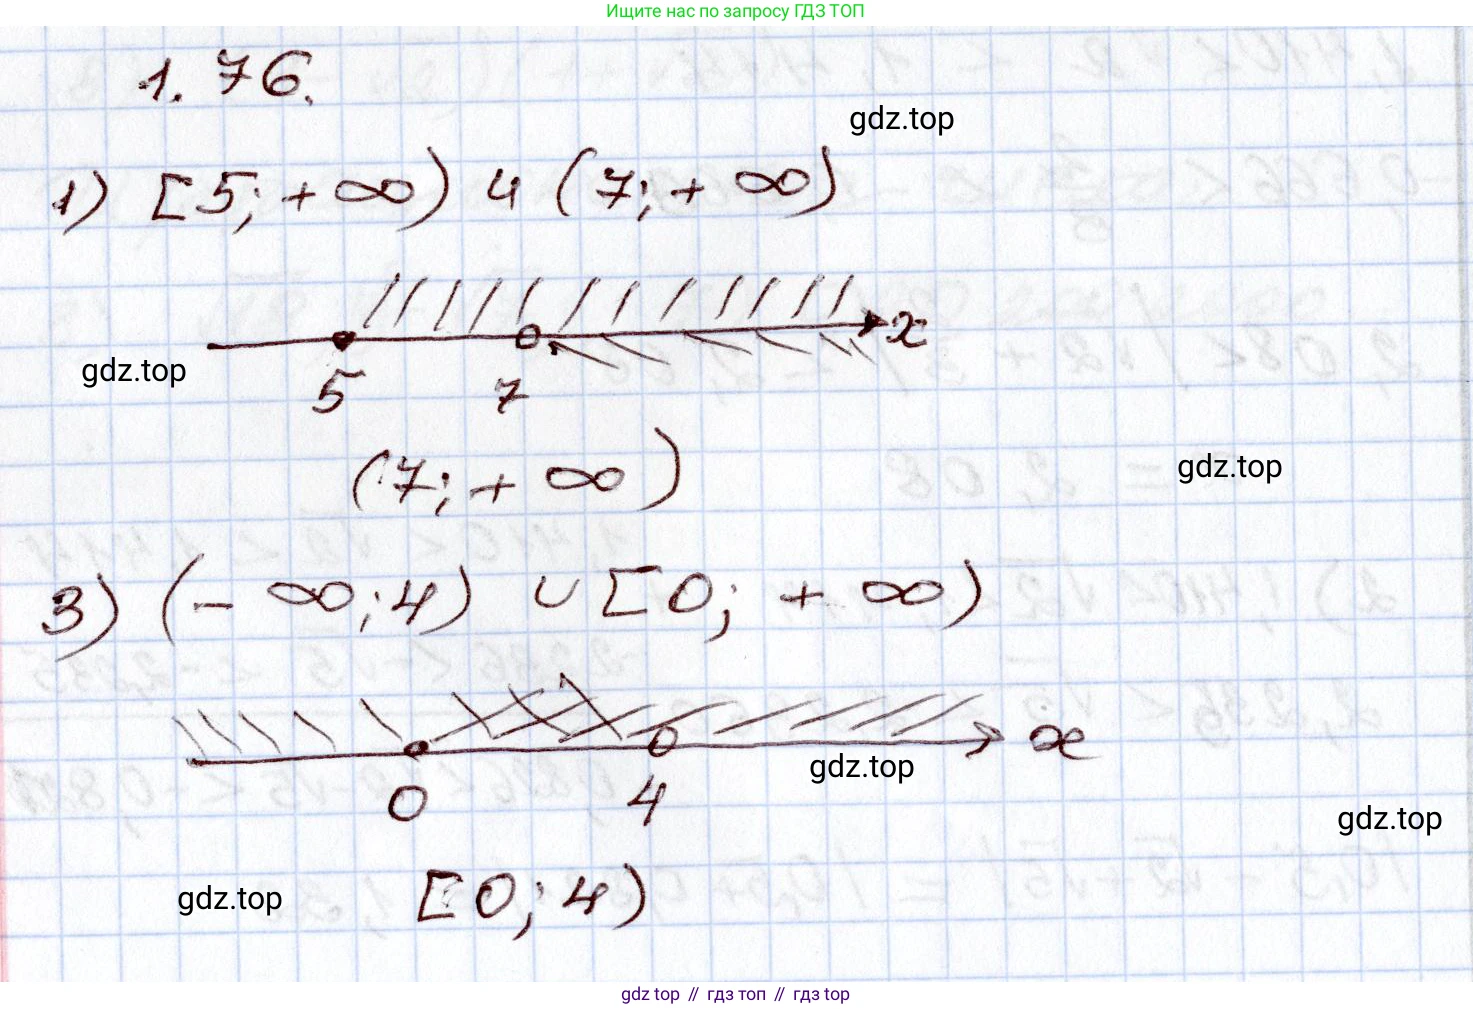 Ищите нас по запросу ГДЗ ТОП
1.76.
gdz.top
1) [5; + ∞) и (7; + ∞)
x
gdz.top
5 7
(7; + ∞)
gdz.top
3) (- ∞; 4) ∪ [0; + ∞)
x
gdz.top
0 4
gdz.top
[0; 4)
gdz.top
gdz top // гдз топ // гдз top